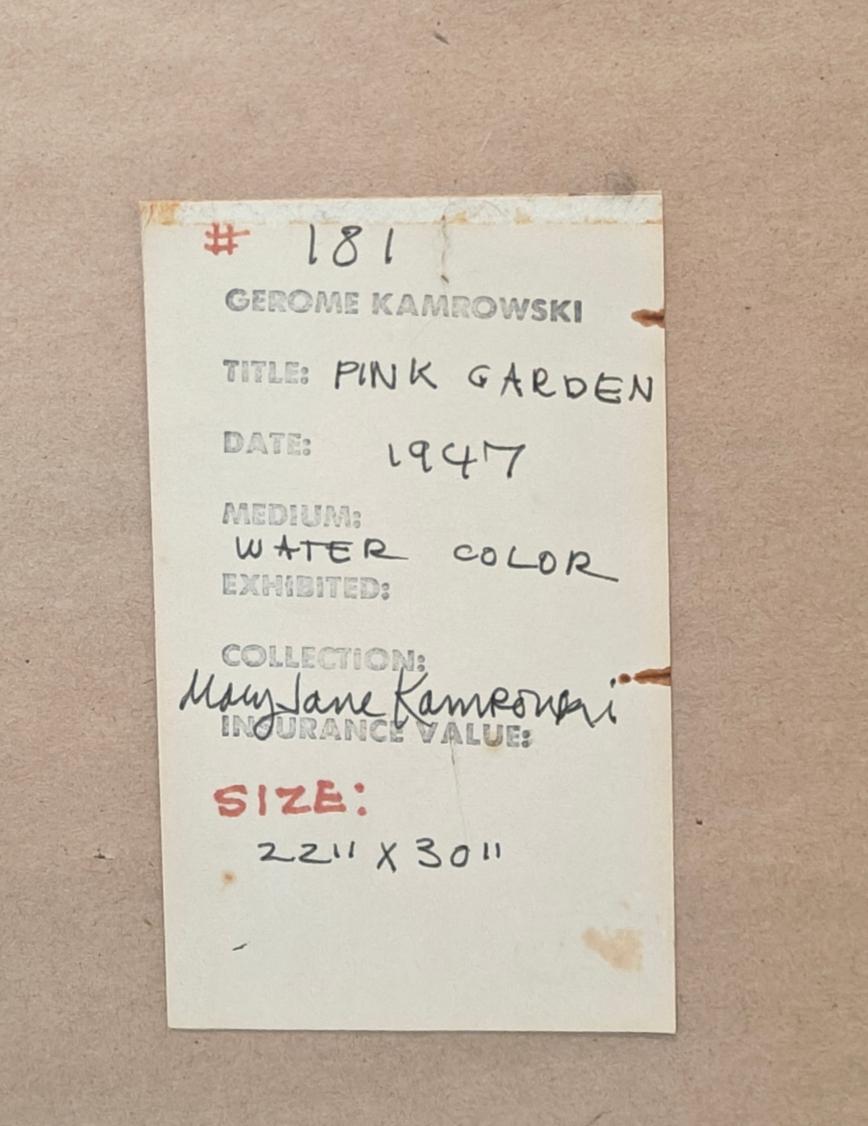 # 181
GEROME KAMROWSKI
TITLE: PINK GARDEN
DATE: 1947
MEDIUM:
WATER COLOR
EXHIBITED:
COLLECTION:
Mary Jane Kamrowski
INSURANCE VALUE:
SIZE:
22" X 30"